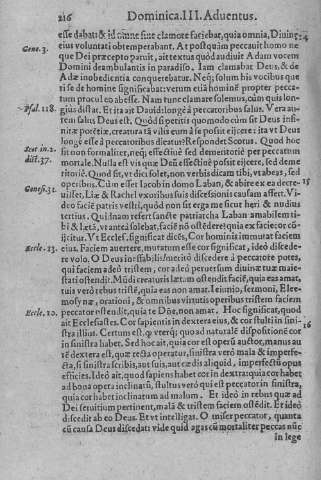 216 Dominica.III.Aduentus.
esse dabati & id cunne siue clamore faciebat, quia omnia, Diuinę
Gene.3. eius voluntati obtemperabant. At postquàm peccauit homo ne
que Dei præcepto paruit, ait textus quòd audiuit Adam vocem
Domini deambulantis in paradiso. Iam clamabat Deus, & de
Adæ inobedientia conquerebatur. Neq; solum his vocibus que
ti se de homine significabat: verum etiã hominẽ propter pecca-
tum procul eo abesse. Nam tunc clamare solemus, cùm quis lon-
Psal.118. giùs distat. Et ita ait Dauid: longè à peccatoribus salus. Vera au-
tem salus Deus est. Quòd si petitis quomodo cùm sit Deus infi-
nitæ potẽtiæ, creatura tã vilis eum à se possit eijcere: ita vt Deus
longè esse à peccatoribus dicatur? Respondet Scotus. Quod hoc
Scot in.2. sit non formaliter, neq; effectiuè sed demeritoriè per peccatum
dist.37. mortale. Nulla est vis quæ Deũ effectiuè possit eijcere, sed deme-
ritoriè. Quod sit, vt dici solet, non verbis dicam tibi, vt abeas, sed
operibus. Cùm esset Iacob in domo Laban, & abire ex ea decre- 15
Genes.31. uisset, Liæ & Rachel vxoribus suis discessionis causam assert. Vi-
deo faciẽ patris vestri, quòd non sit erga me sicut heri & nudius
tertius. Qui inam refert sanctè patriarcha Laban amabilem ti-
bi & lætã, vt anteà solebat, faciẽ nõ ostẽdere: qui ex facie: cor cõ-
ijcitur. Vt Eccles. significat dicẽs, Cor hominis immutat faciem
Eccle.13. eius. Faciem auertere, mutatum esse cor significat, ideò discede-
re volo. O Deus ineffabilis! meritò discedere à peccatore potes,
qui faciem adeò tristem, cor adeò peruersum diuinæ tuæ maie-
stati ostendit. Mũdi creaturis lætam ostendit faciẽ, quia eas amat,
tuis verò rebus tristẽ, quia eas non amat. Ieiunio, sermoni, Elee-
mosynæ, orationi, & omnibus virtutis operibus tristem faciem
Eccle.10. peccator ostendit, quia te Dñe, non amat. Hoc significat, quod
ait Ecclesiastes. Cor sapientis in dextera eius, & cor stulti in sini-
stra illius. Certum est, q vterq; quo ad naturalẽ dispositionẽ cor 16
in sinistra habet. Sed hoc ait, quia cor est operũ auctor, manus au
tẽ dextera est, quæ recta operatur, sinistra verò mala & imperfe-
cta, si sinistra scribis, aut suis, aut cædis aliquid, imperfectũ opus
efficis. Ideò ait, quod sapiens habet cor in dextra: quia cor habet
ad bona opera inclinatũ, stultus verò qui est peccator in sinistra,
quia cor habet inclinatum ad malum. Et ideò in rebus quæ ad
Dei seruitium pertinent, malã & tristem faciem ostẽdit. Et ideò
discedit ab eo Deus. Et vt intelligas. O miser peccator, quanta
cũ causa Deus discedat: vide quid agas cũ mortaliter peccas nũc
in lege